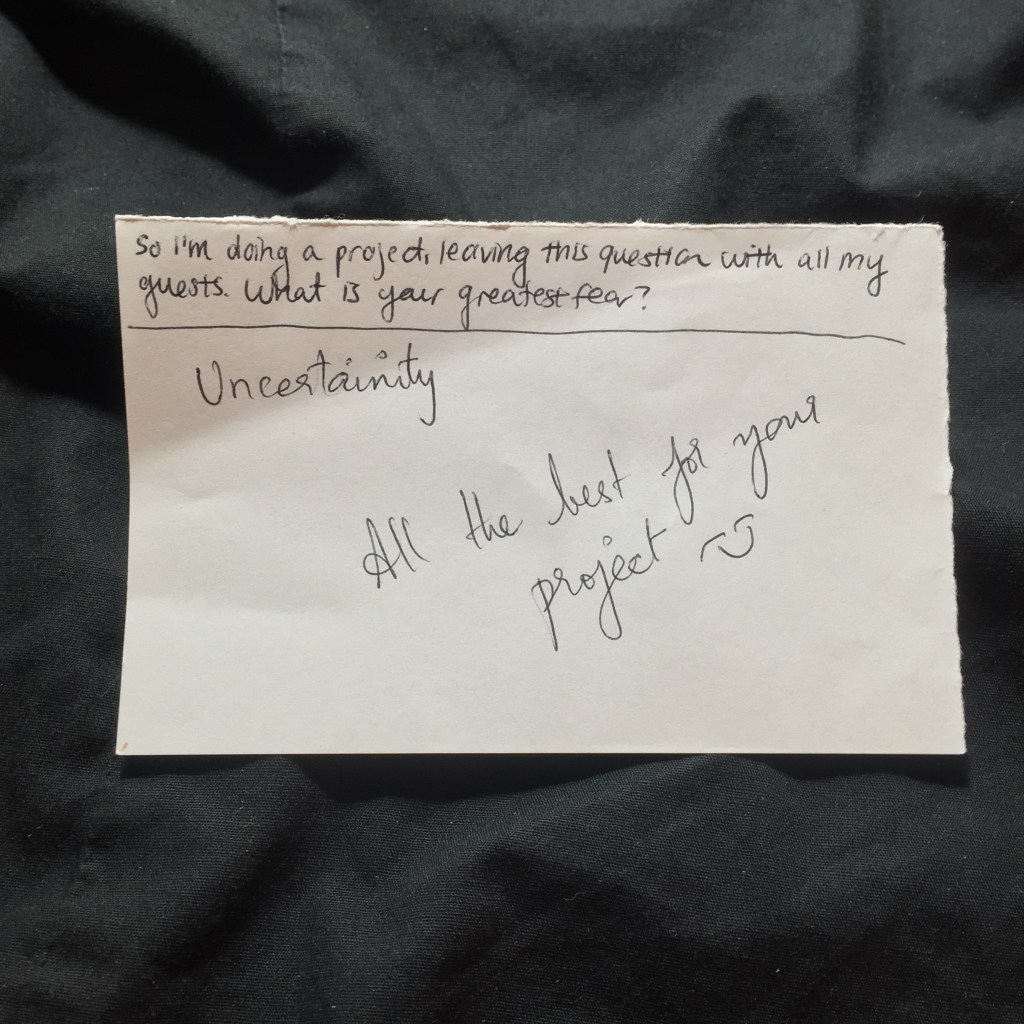 So I'm doing a project, leaving this question with all my
guests. What is your greatest fear?
Uncertainity
All the best for your
project :)